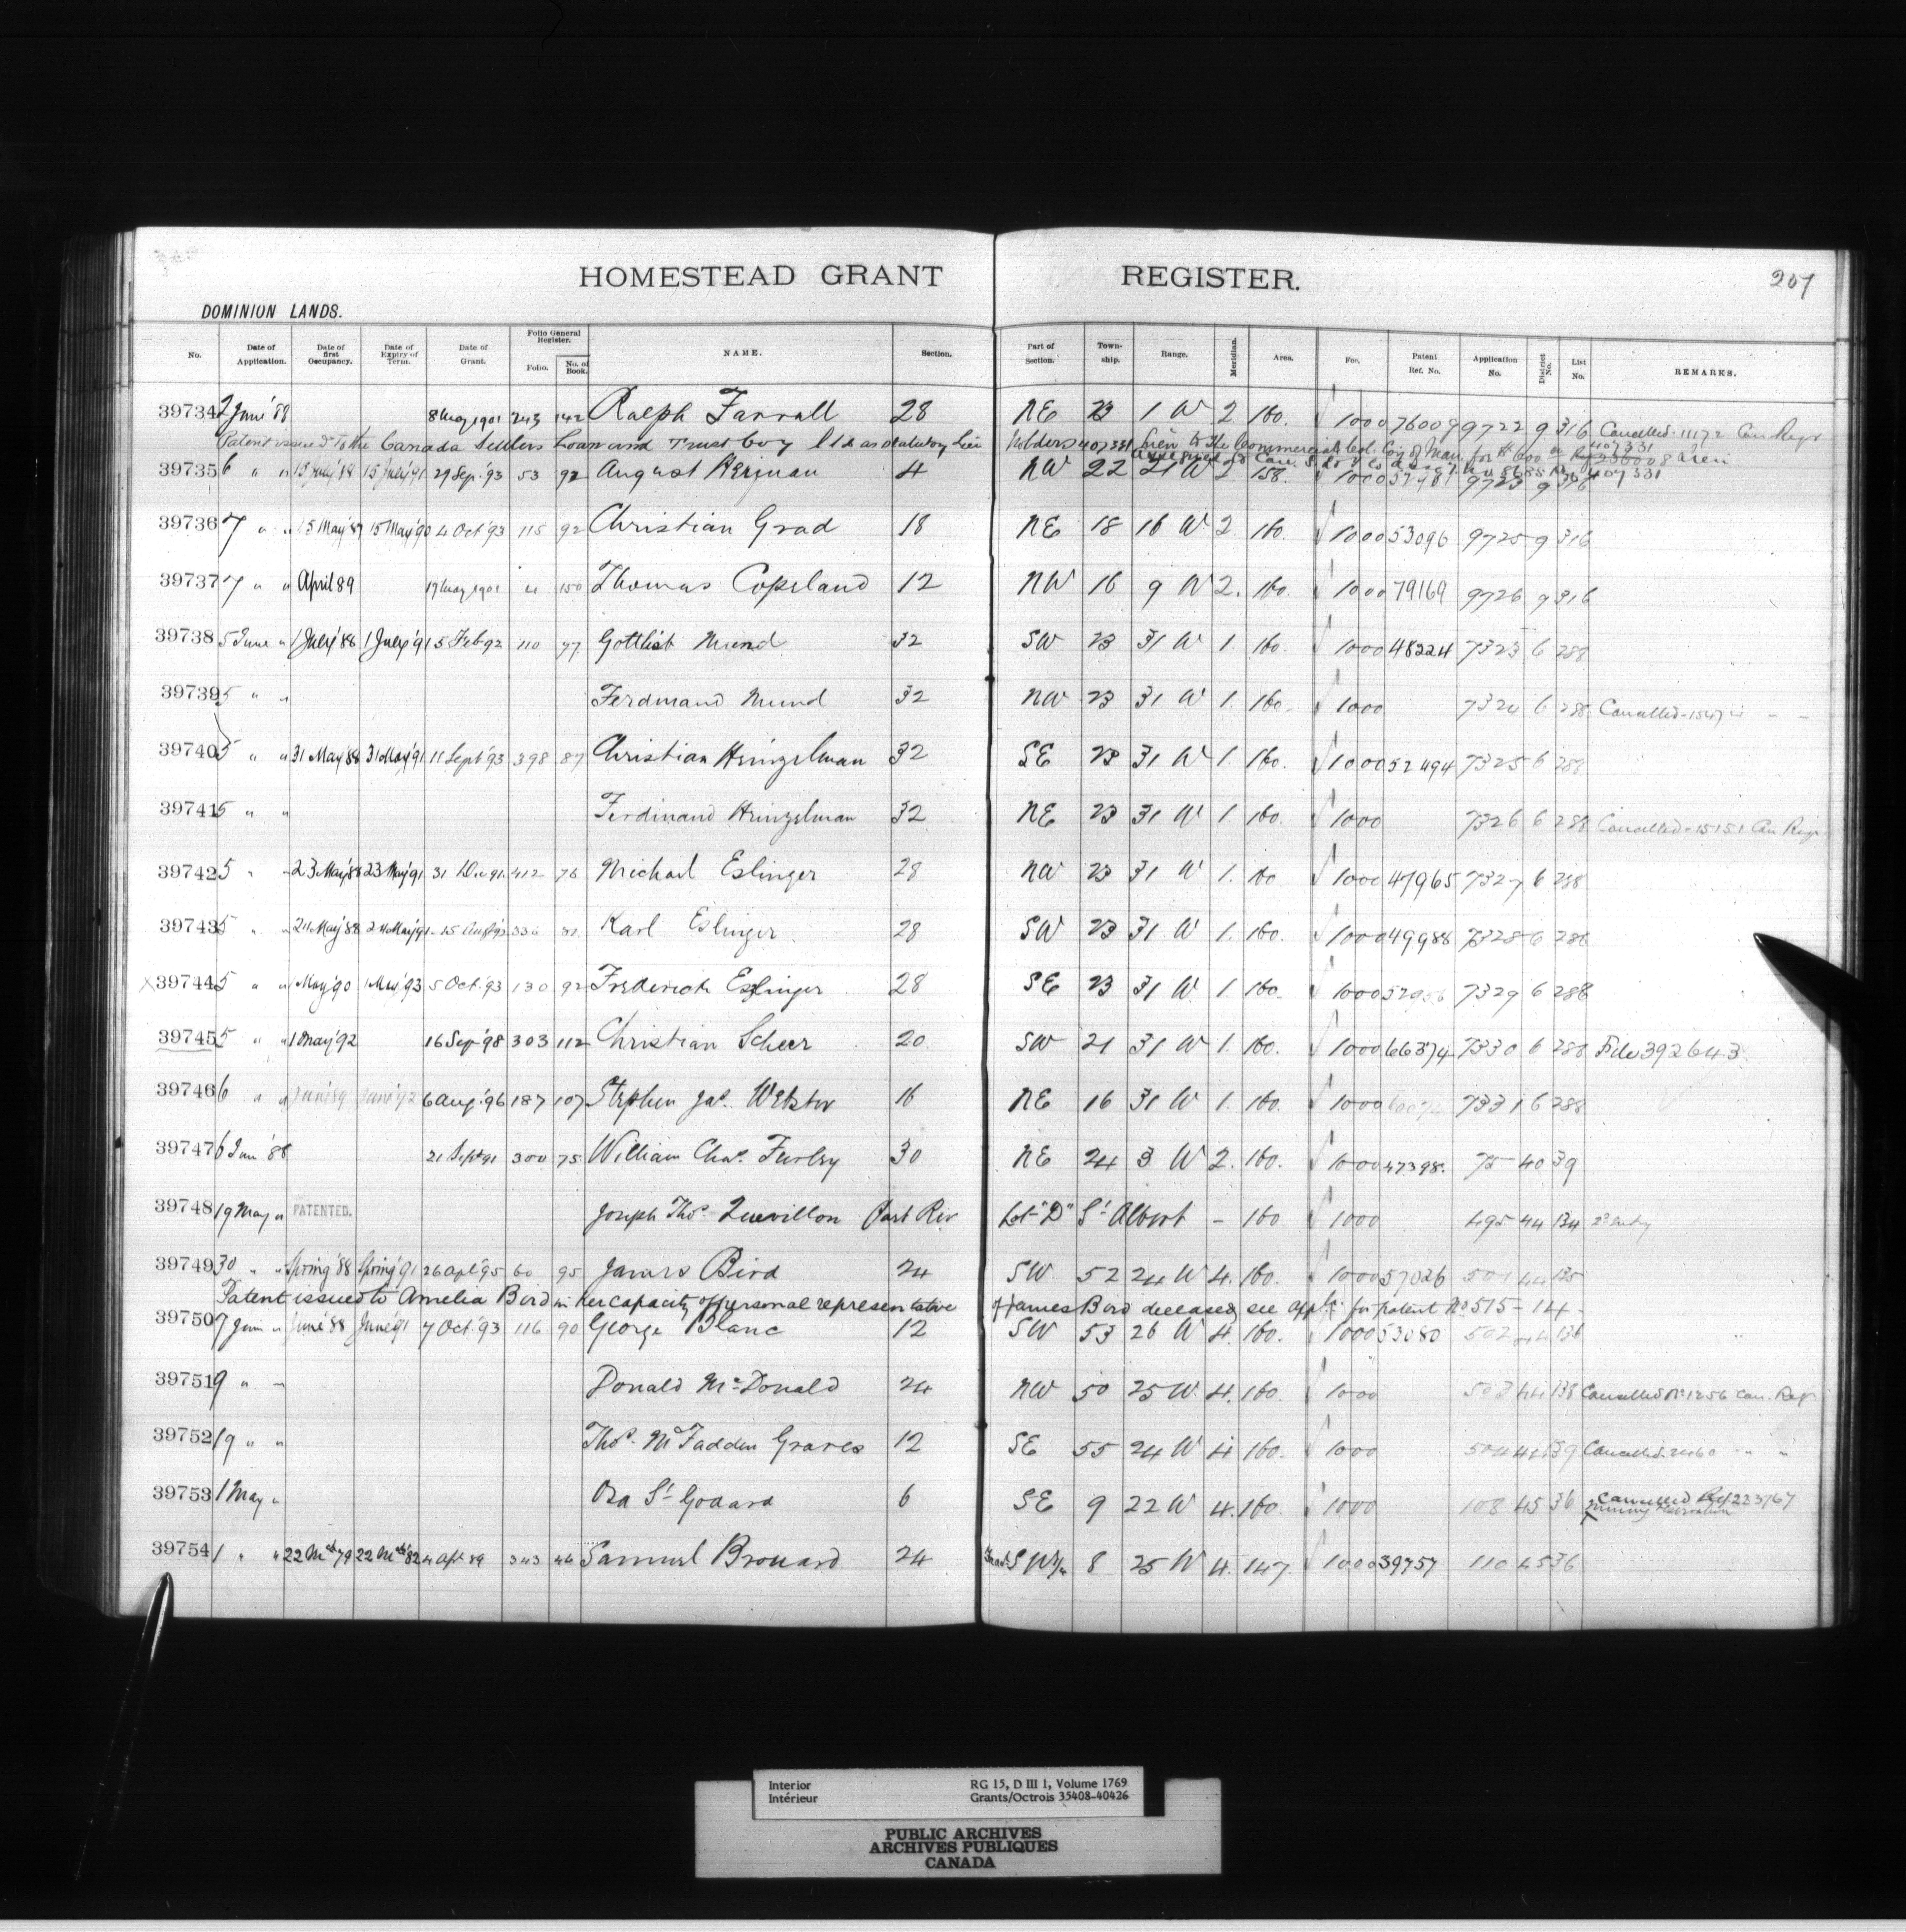 HOMESTEAD GRANT REGISTER. 207
DOMINION LANDS.
No. Date of Application. Date of first Occupancy. Date of Expiry of Term. Date of Grant. Folio General Register. Folio. No. of Book. NAME. Section. Part of Section. Town-ship. Range. Meridian. Area. Fee. Patent Ref. No. Application No. District No. List No. REMARKS.
39734 2 June '88 8 May 1901 243 142 Ralph Farrall 28 NE 23 1 W 2. 160. 1000 76009 9722 9 316 Cancelled. 11172 Can Regr
Patent issued to the Canada Settlers Loan and Trust Coy Ltd as statutory Lien holders 407331 Lien to the Commercial Col. Coy of Man. for $600
39735 6 " " 15 July '88 15 July '91 29 Sep. '93 53 92 August Herman 4 NW 22 21 W 2. 158. 1000 9723 9 316 407331
39736 7 " " 15 May '87 15 May '90 4 Oct '93 115 92 Christian Grad 18 NE 18 16 W 2. 160. 1000 53096 9725 9 316
39737 7 " " April 89 17 May 1901 150 Thomas Copeland 12 NW 16 9 W 2. 160. 1000 79169 9726 9 316
39738 5 June " 1 July '88 1 July '91 5 Feb 92 110 77 Gottlieb Mund 32 SW 23 31 W 1. 160. 1000 48224 7323 6 288
39739 5 " " Ferdinand Mund 32 NW 23 31 W 1. 160. 1000 7324 6 288 Cancelled - " "
39740 5 " " 31 May '88 31 May '91 11 Sept '93 398 87 Christian Heinzelman 32 SE 23 31 W 1. 160. 1000 52494 7325 6 288
39741 5 " " Ferdinand Heinzelman 32 NE 23 31 W 1. 160. 1000 7326 6 288 Cancelled - 15151 Can Regr
39742 5 " " 23 May '88 23 May '91 31 Dec 91. 412 76 Michael Eslinger 28 NW 23 31 W 1. 160 1000 47965 7327 6 288
39743 5 " " 24 May '88 24 May '91 15 Aug '92 336 Karl Eslinger 28 SW 23 31 W 1. 160. 1000 49988 7328 6 288
39744 5 " " 1 May '90 1 May '93 5 Oct. '93 130 92 Frederick Eslinger 28 SE 23 31 W 1. 160. 1000 7329 6 288
39745 5 " " 1 May '92 16 Sep '98 303 112 Christian Scheer 20 SW 21 31 W 1. 160. 1000 66374 7330 6 288 File 392643.
39746 6 " " June '89 June '92 6 Aug. '96 187 107 Stephen Jas. Webster 16 NE 16 31 W 1. 160. 1000 7331 6 288
39747 6 Jun '88 21 Sept 91 300 75 William Chas. Furby 30 NE 24 3 W 2. 160. 1000 47398. 75 40 39
39748 19 May " PATENTED. Joseph Thos. Quevillon Part Riv Lot "D" St Albert - 160 1000 495 44 134 2d Entry
39749 30 " " Spring '88 Spring '91 26 Apl '95 60 95 James Bird 24 SW 52 24 W 4. 160. 1000 57026 501 44 135
Patent issued to Amelia Bird in her capacity of personal representative of James Bird deceased, see appln for patent No 515-14-
39750 7 Jun " June '88 June '91 7 Oct. '93 116 90 George Blanc 12 SW 53 26 W 4. 160. 1000 53080 502 44 136
39751 9 " " Donald McDonald 24 NW 50 25 W. 4. 160. 1000 503 44 138 Cancelled No 1256 Can. Regr
39752 19 " " Thos. McFadden Graves 12 SE 55 24 W 4 160. 1000 504 44 139 Cancelled. 2460 " "
39753 1 May " Oza St Godard 6 SE 9 22 W 4. 160. 1000 108 45 36 Cancelled Ref 223167
39754 1 " " 22 Mch '79 22 Mch '82 4 Apl 89 343 46 Samuel Brouard 24 SW 1/4 8 25 W 4. 147. 1000 39757 110 45 36
Interior RG 15, D III 1, Volume 1769
Intérieur Grants/Octrois 35408-40426
PUBLIC ARCHIVES
ARCHIVES PUBLIQUES
CANADA